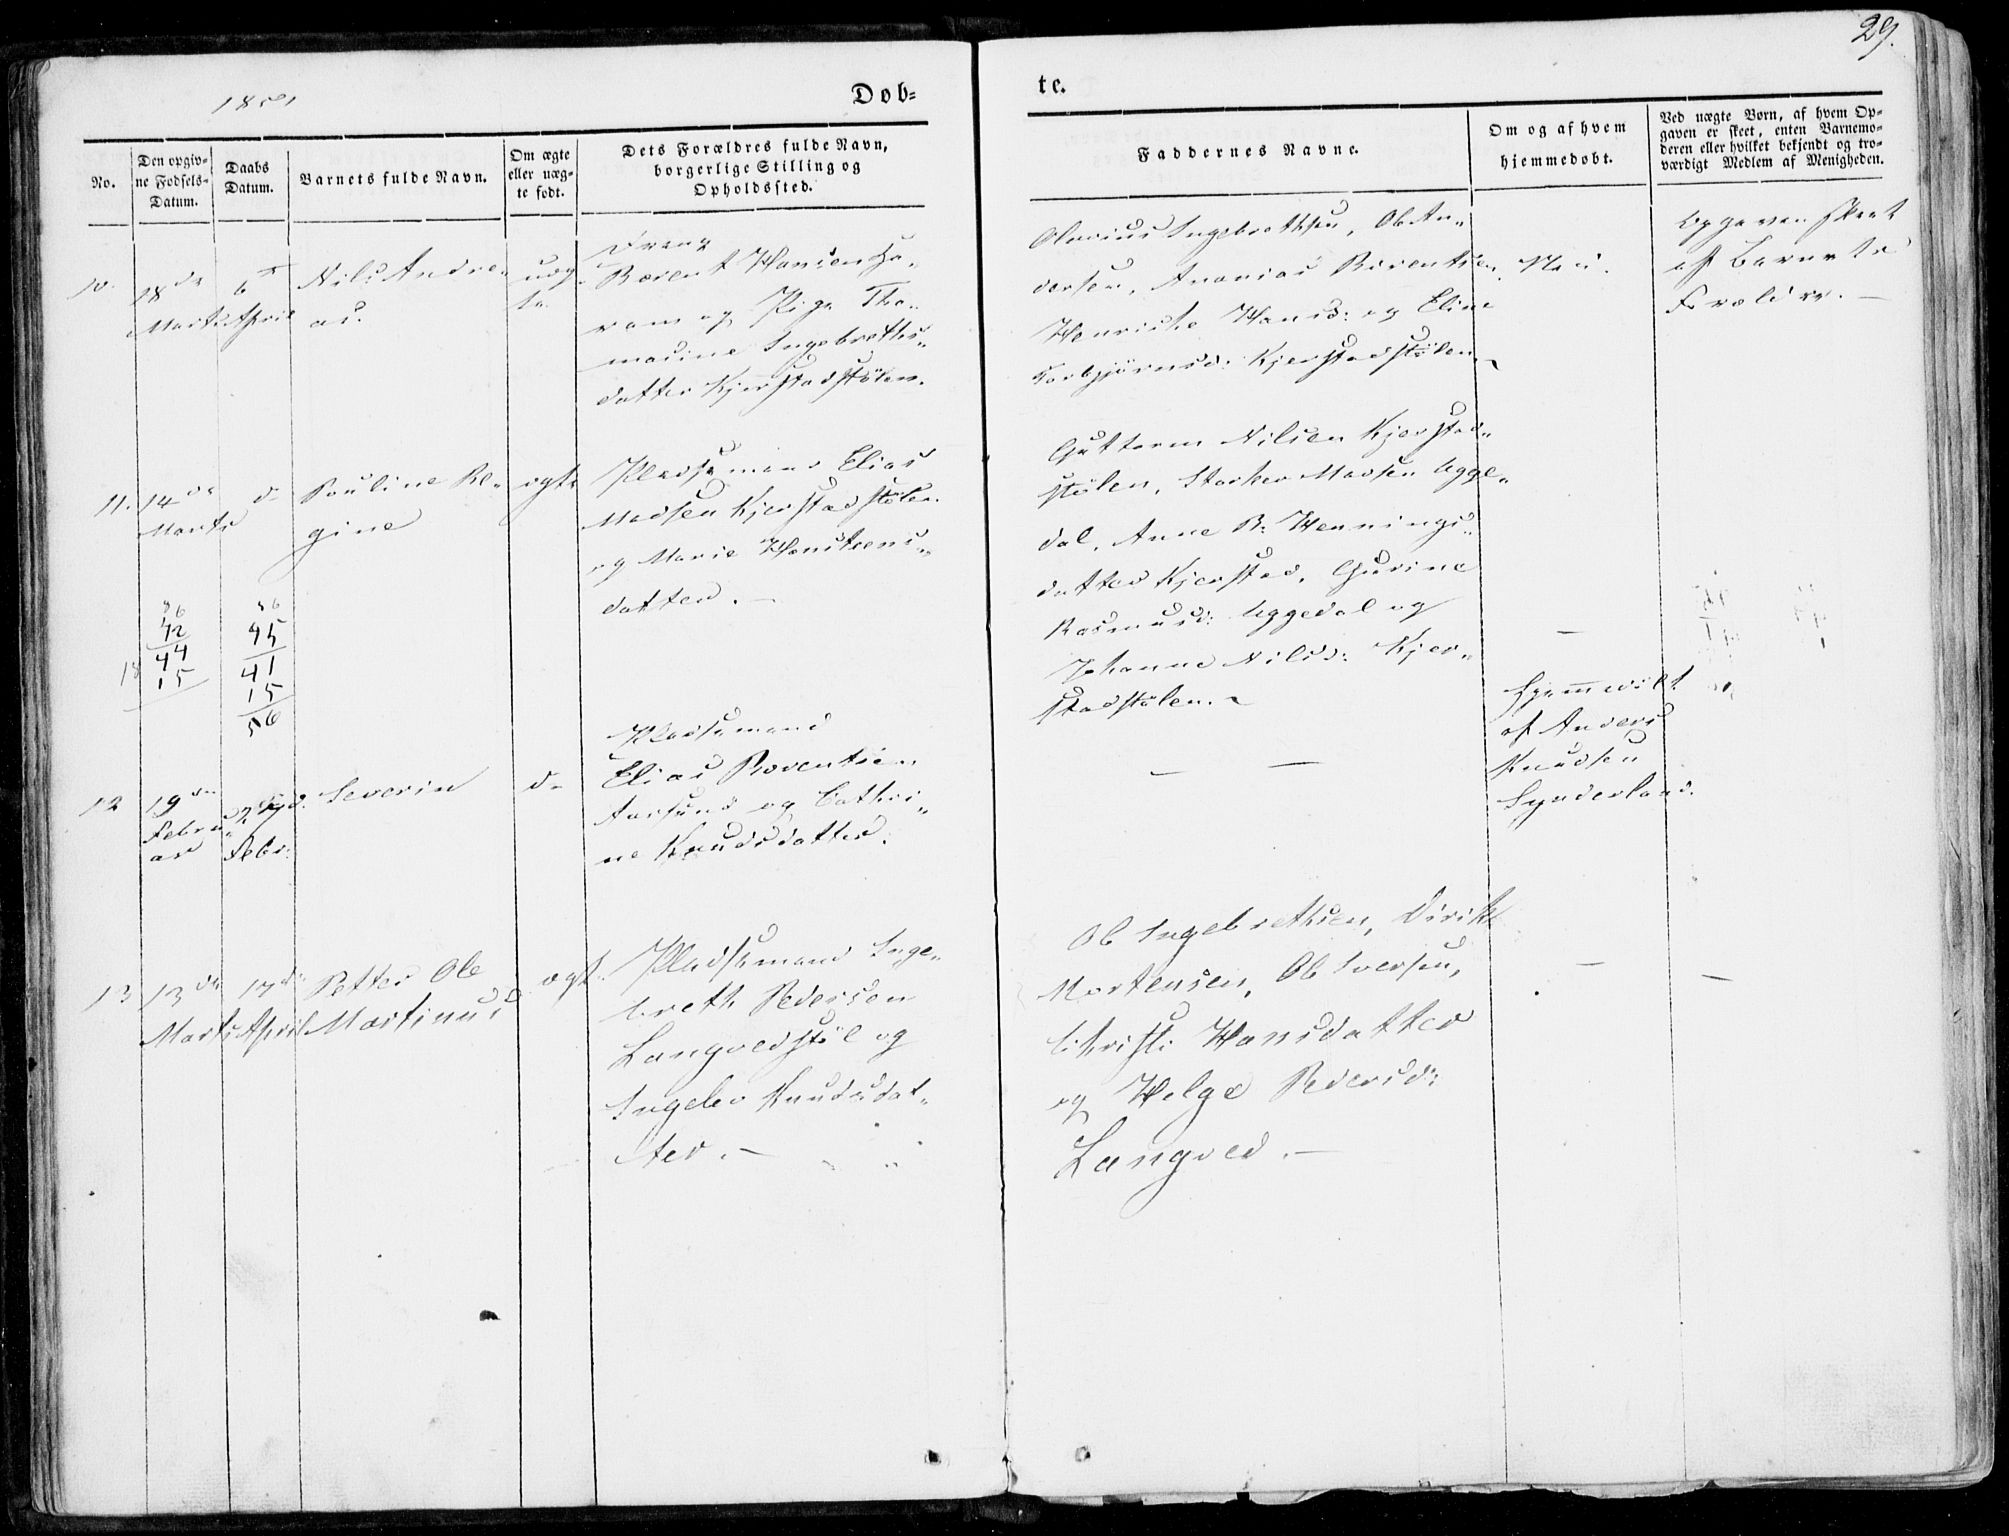 29.
1851
Døb-
te.
No.
Den opgiv-
ne Fødsels-
Datum.
Daabs
Datum.
Barnets fulde Navn.
Om ægte
eller uæg-
te født.
Dets Forældres fulde Navn,
borgerlige Stilling og
Opholdssted.
Faddernes Navne.
Om og af hvem
hjemmedøbt.
Ved uægte Børn, af hvem Op-
gaven er skeet, enten Barnemo-
deren eller hvilket bekjendt og tro-
værdigt Medlem af Menigheden.
10.
18de
Marts
6te
April
Nils Andre-
as.
uæg
te
Dreng
Berent Hansen Ha-
ram og Pige Tho-
masine Ingebretts-
datter Kjerstadstølen.
Olavius Ingebrethsen, Ole An-
dersen, Ananias Berentsen,
Henrikke Hansd: og Eline
Torbjørnsd: Kjerstadstølen
Nei.
Opgaven skeet
af Barnets
Forældre. —
11.
14de
Marts
d-
Pauline Re-
gine
ægte
Pladsemand Elias
Madsen Kjerstadstølen
og Marie Hanstens-
datter. —
Guttorm Nilsen Kjerstad-
stølen, Madsen Ugge-
dal, Anne B: Hennings-
datter Kjerstad, Gurine
Rasmusd: Uggedal og
Johanne Nilsd: Kjer-
stadstølen.
—
56
42
44
15
18
56
45
41
15
56
12
19de
Febru-
ar
Febr:
Severin
d-
Pladsemand
Elias Berentsen
Aarsund og Cathri-
ne Knudsdatter.
— —
Hjemmedøbt
af Anders
Knudsen
Synderland.
13
13de
Marts
17de
April
Petter Ole
Martinus
ægte
Pladsemand Inge-
breth Pedersen
Langvedstøl og
Ingebor Knudsdat-
ter. —
Ole Ingebrethsen, Dirik
Mortensen, Ole Iversen,
Christi Hansdatter
og Helge Pedersd:
Langved. —
—
—